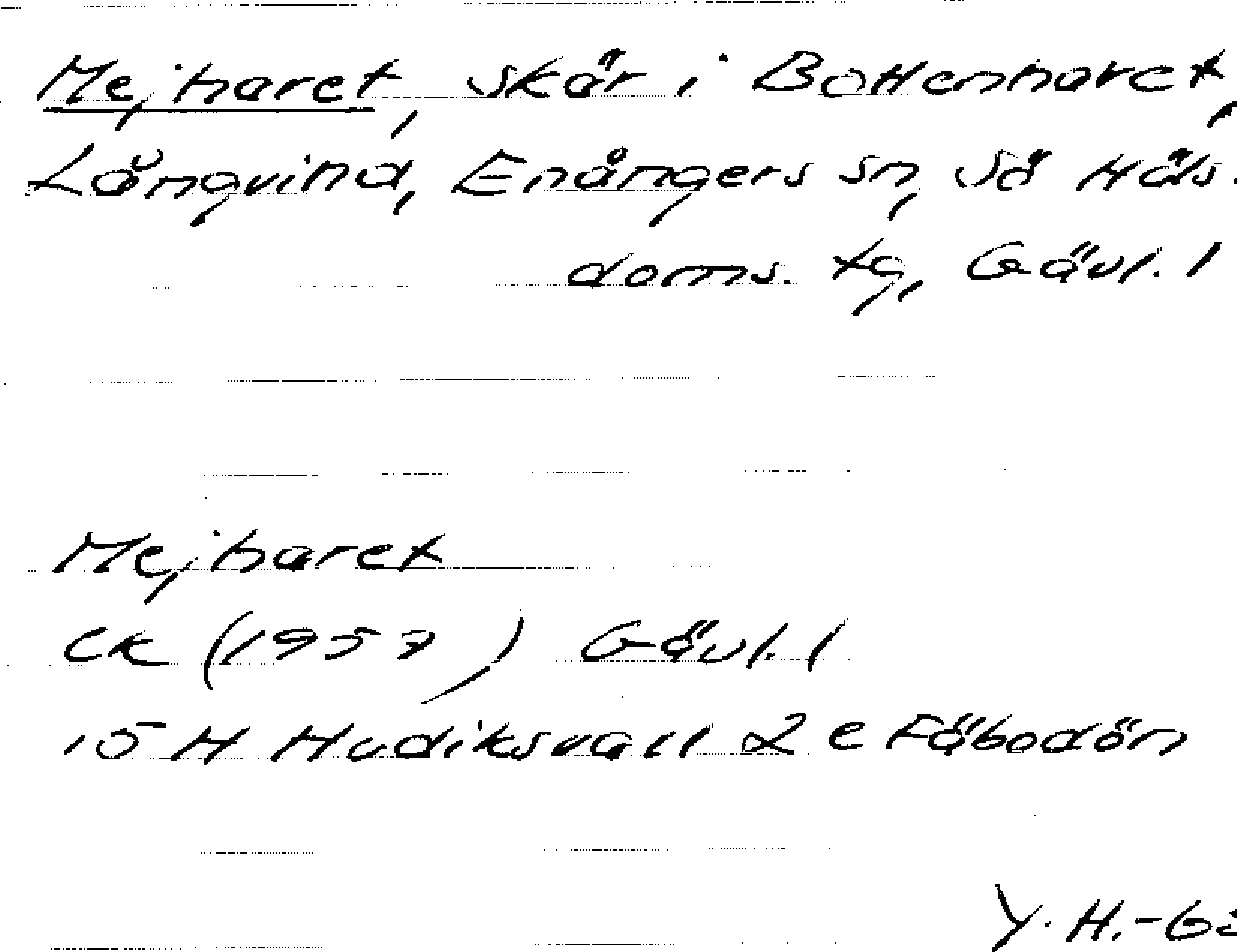 Mejharet, skär i Bottenhavet,
Långvind, Enångers sn, Sö Häls.
doms. tg, Gävl. l
Mejharet
EK (1957) Gävl. l
15 H Hudiksvall 2 e Fäbodön
Y. H.-63